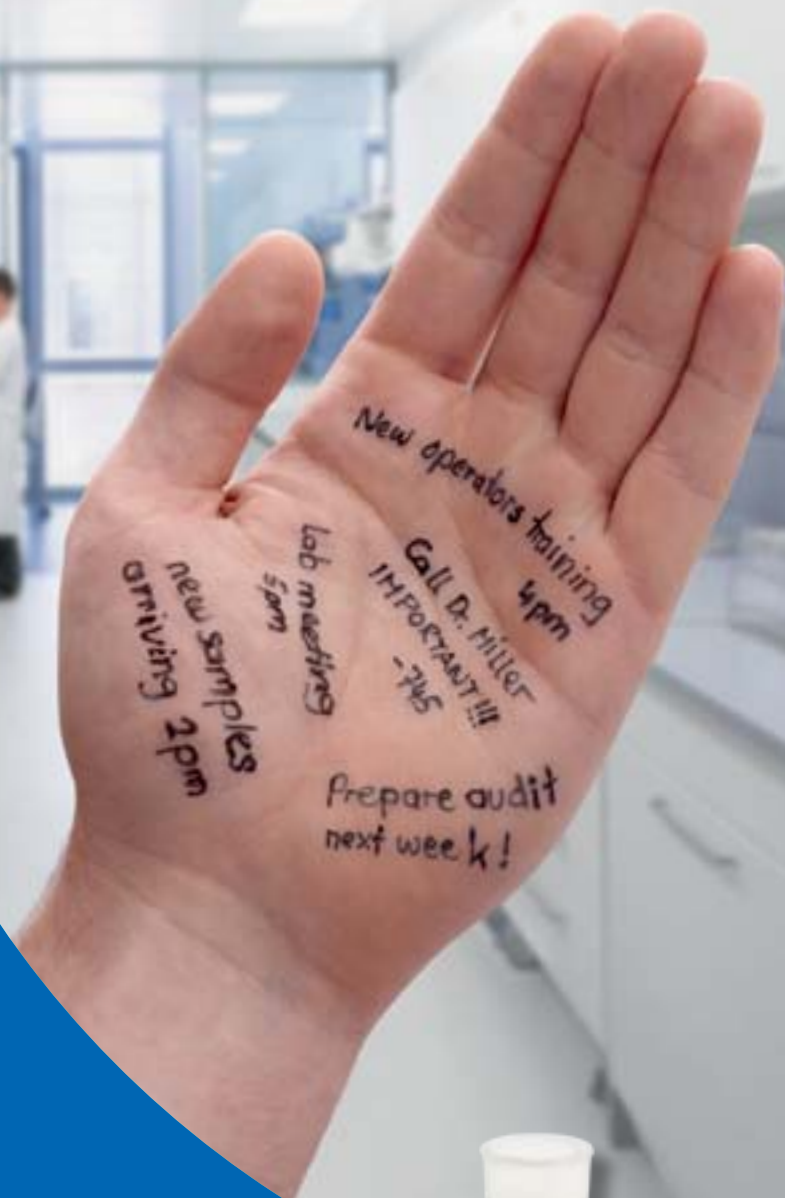 New operators training
4pm
Call Dr. Miller
IMPORTANT!!!
-745
lab meeting
5pm
new samples
arriving 2pm
Prepare audit
next week!